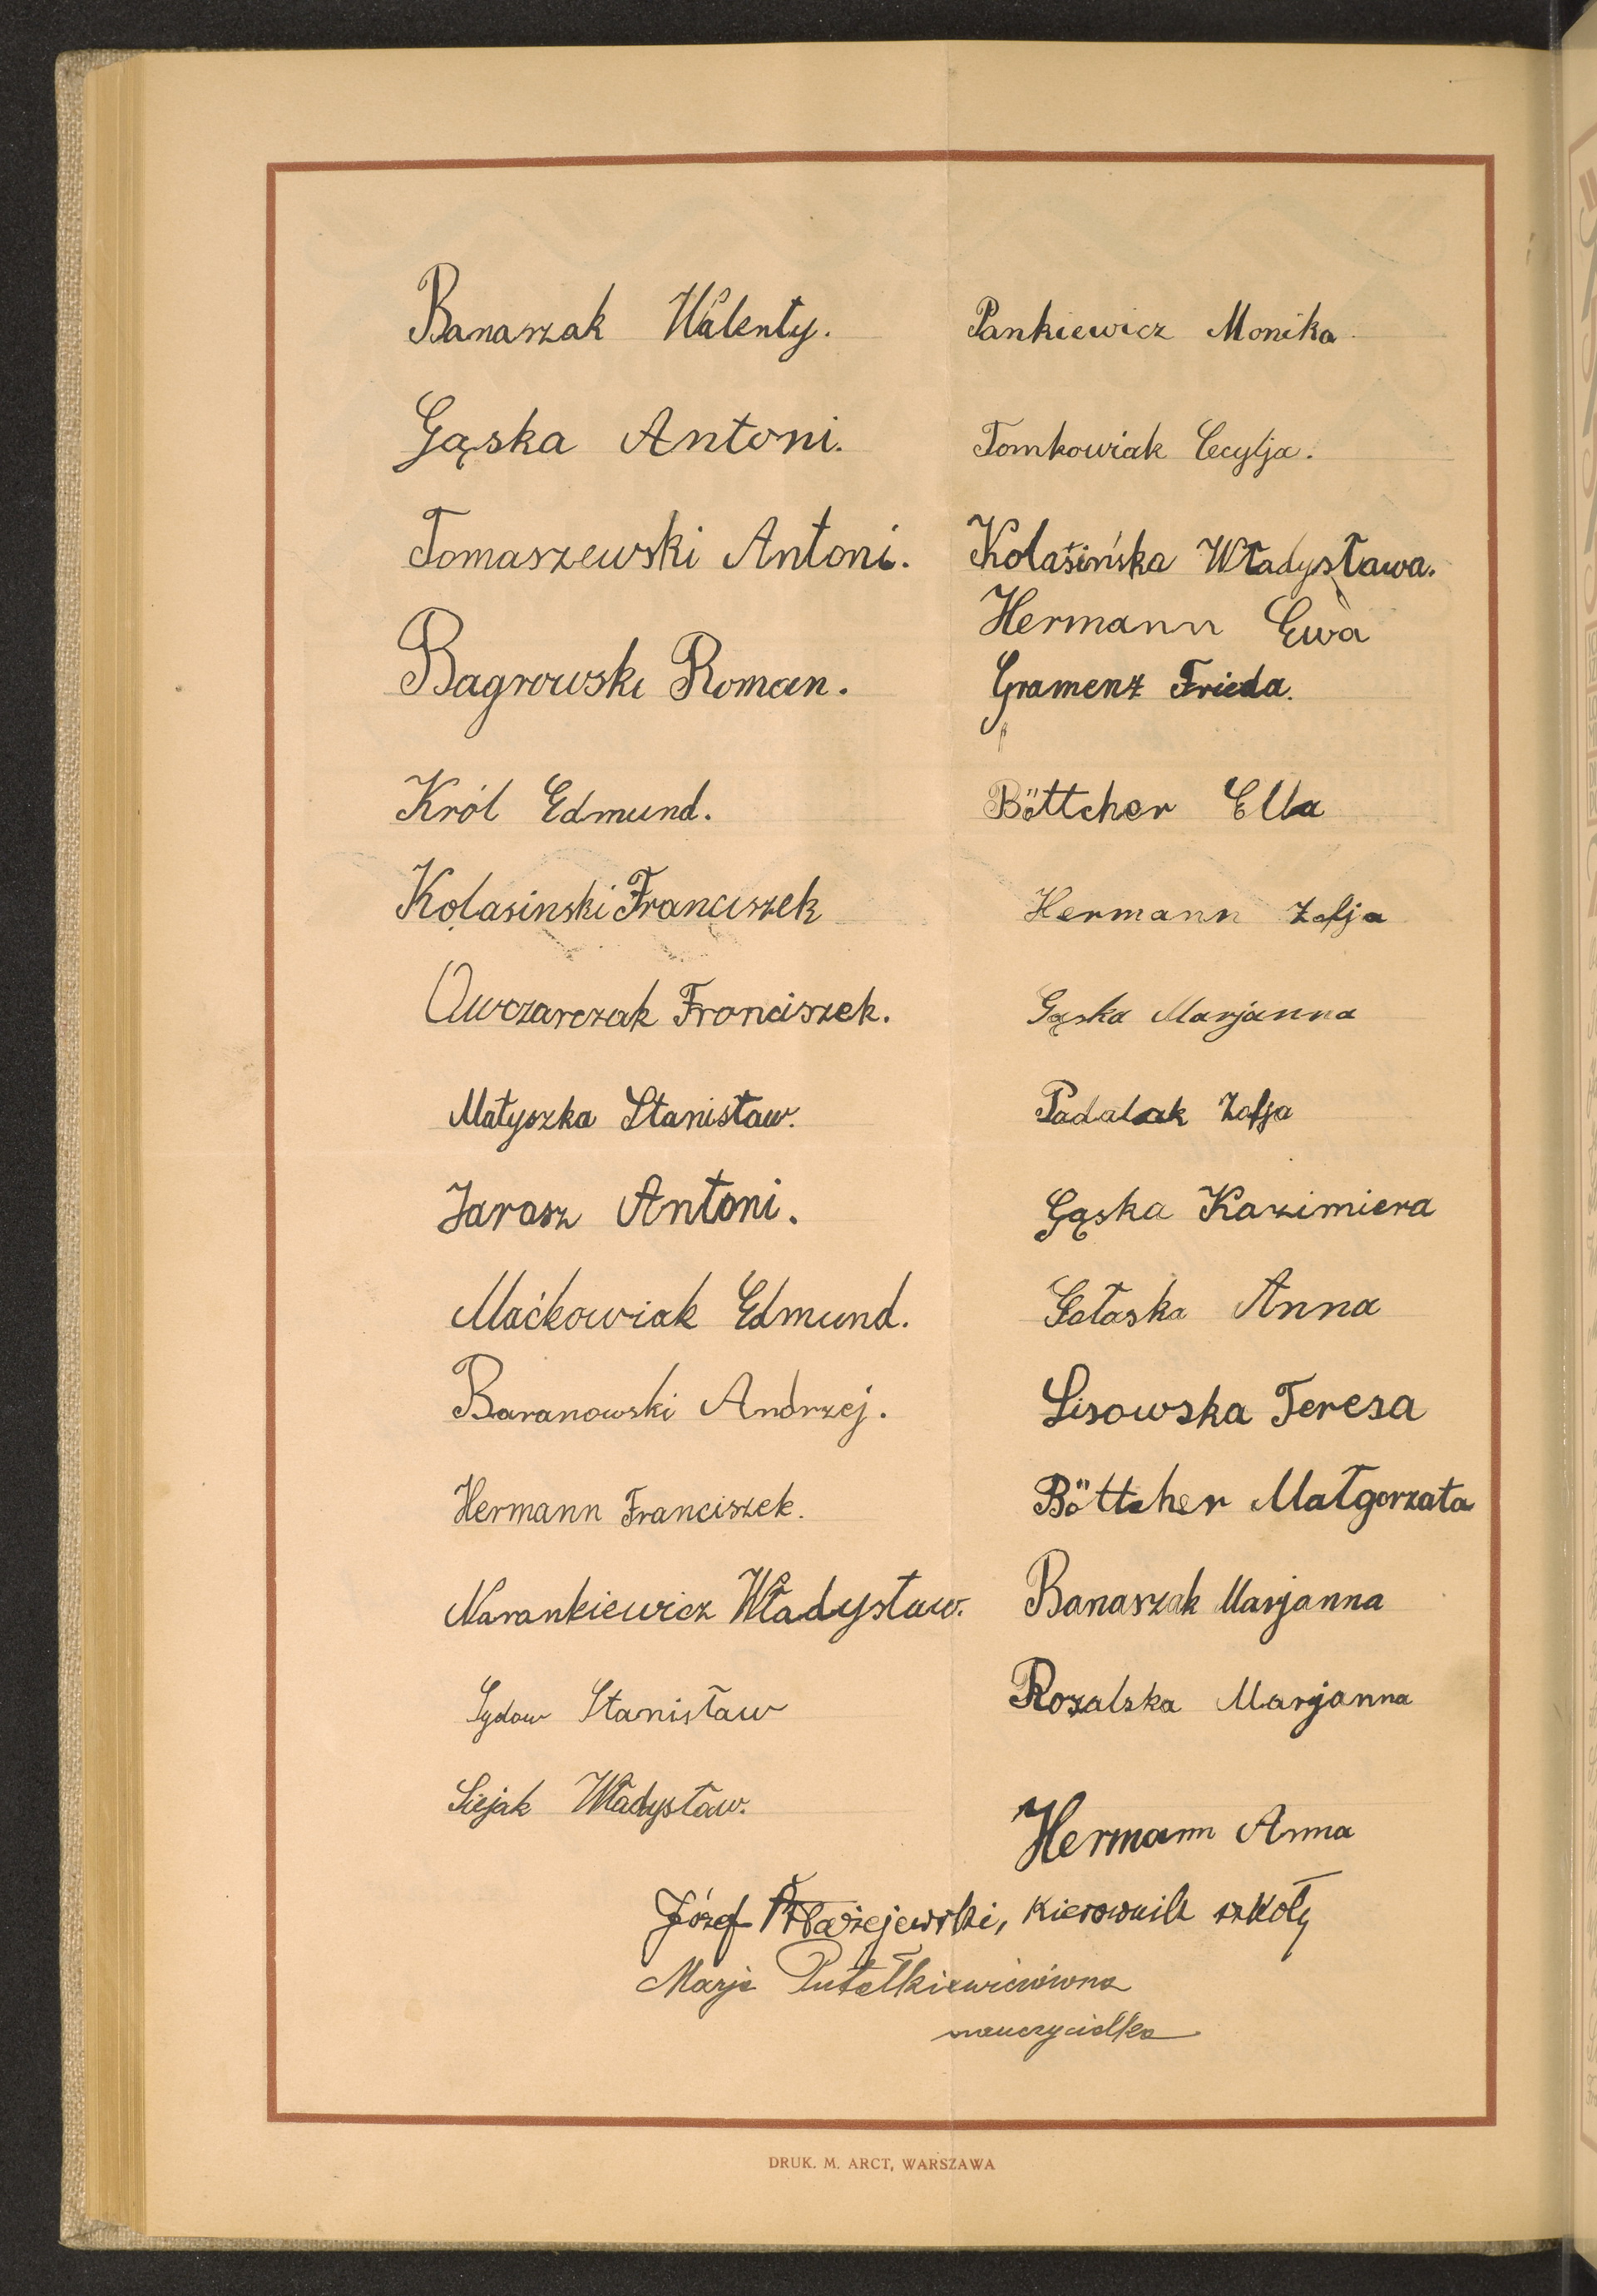 Banaszak Walenty.
Gąska Antoni.
Tomaszewski Antoni.
Bagrowski Roman.
Król Edmund.
Kolasinski Franciszek
Owczarczak Franciszek.
Matyszka Stanisław.
Jarosz Antoni.
Maćkowiak Edmund.
Baranowski Andrzej.
Hermann Franciszek.
Narankiewicz Władysław.
Sydow Stanisław
Siejak Władysław.
Pankiewicz Monika
Tomkowiak Cecylja.
Kolasińska Władysława.
Hermann Ewa
Gramenz Frieda.
Böttcher Ella
Hermann Zofja
Gąska Marjanna
Padalak Zofja
Gąska Kazimiera
Gałaska Anna
Lisowska Teresa
Böttcher Małgorzata
Banaszak Marjanna
Rozalska Marjanna
Hermann Anna
Józef kierownik szkoły
Marja
nauczycielka
DRUK. M. ARCT, WARSZAWA